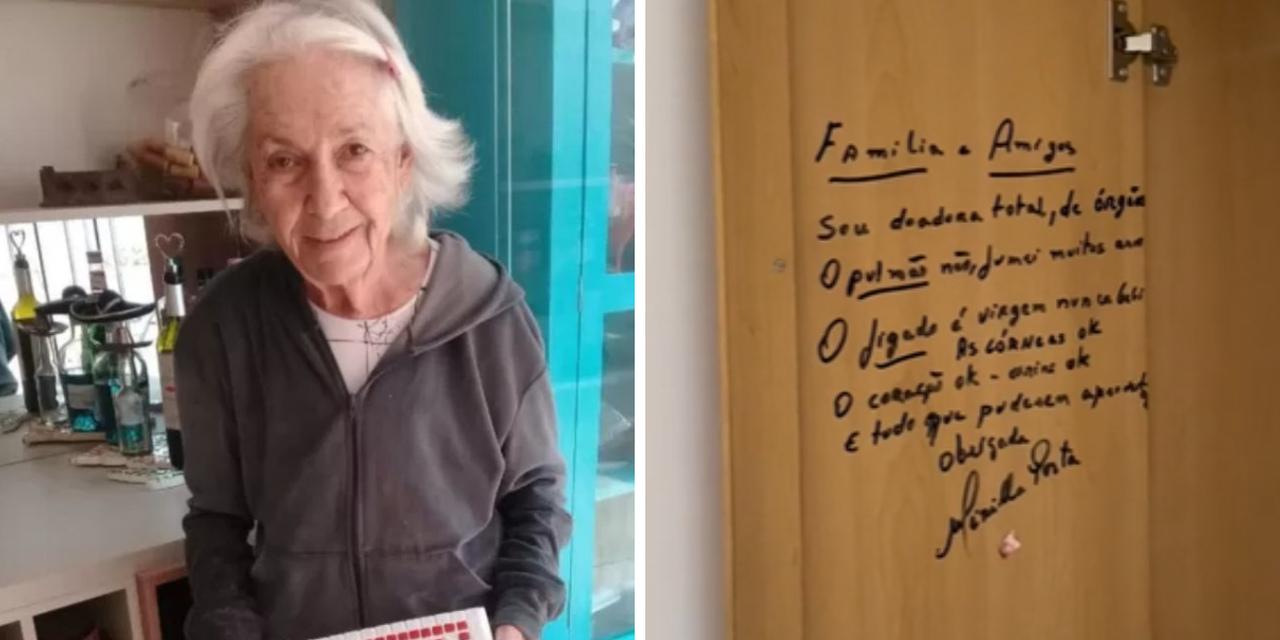 Família e Amigos
Sou doadora total, de órgão
O pulmão não, fumei muitos
O fígado é virgem nunca bebi
As córneas ok
O coração ok - ok
E tudo que puderem
Obrigada
Porta